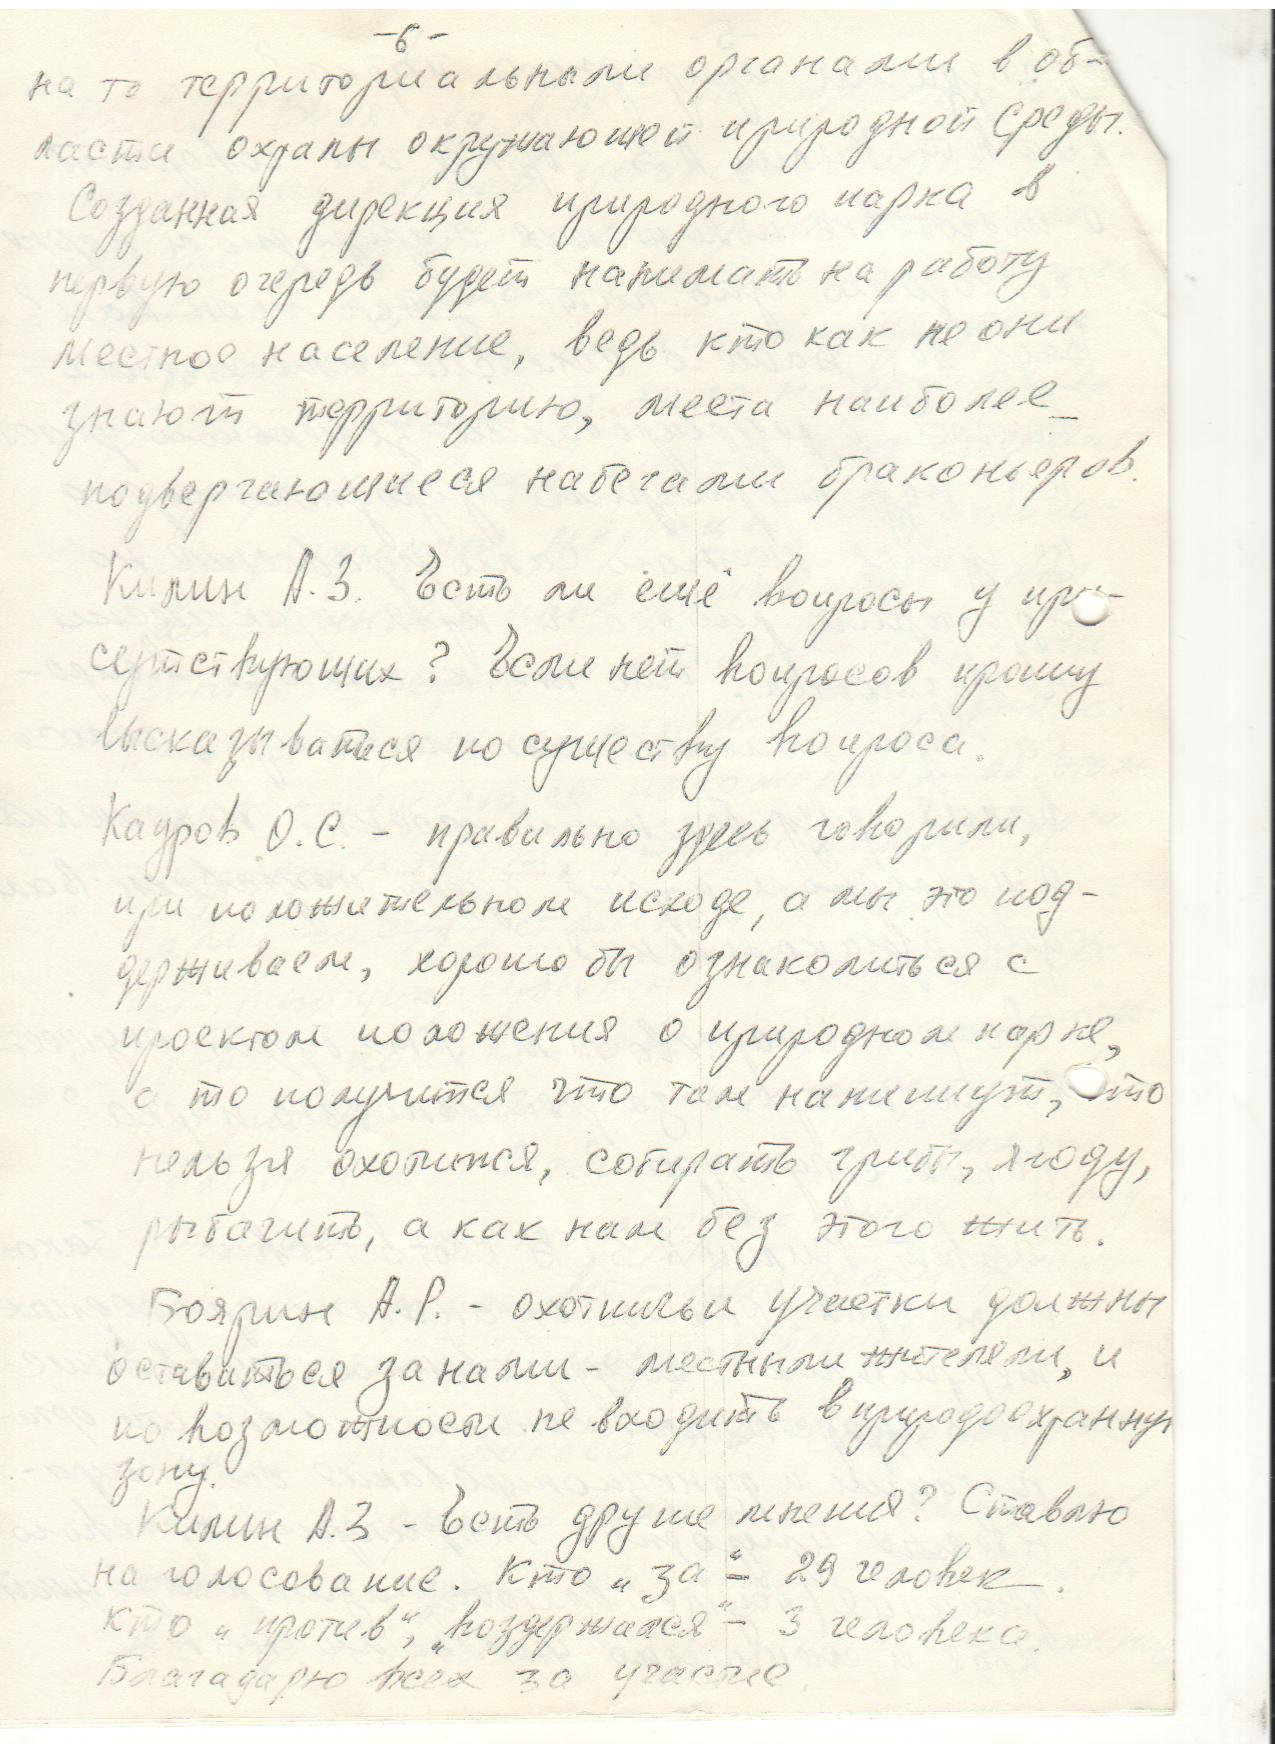 -6-
на то территориальными органами в об-
ласти охраны окружающей природной среды.
Созданная дирекция природного парка в
первую очередь будет нанимать на работу
местное население, ведь кто как не они
знают территорию, места наиболее
подвергающиеся набегами браконьеров.
Килин А.З. Есть ли ещё вопросы у при-
сутствующих? Если нет вопросов прошу
высказываться по существу вопроса.
Кауров О.С. - правильно здесь говорили,
при положительном исходе, а мы это под-
держиваем, хорошо бы ознакомиться с
проектом положения о природном парке,
а то получится что там напишут, что
нельзя охотится, собирать грибы, ягоду,
рыбачить, а как нам без этого жить.
Боярин А.Р. - охотничьи участки должны
оставиться за нами - местными жителями, и
по возможности не входить в природоохранную
зону.
Килин А.З - Есть другие мнения? Ставлю
на голосование. Кто „за“ - 29 человек.
Кто „против“, „воздержался“ - 3 человека.
Благадарю всех за участие.